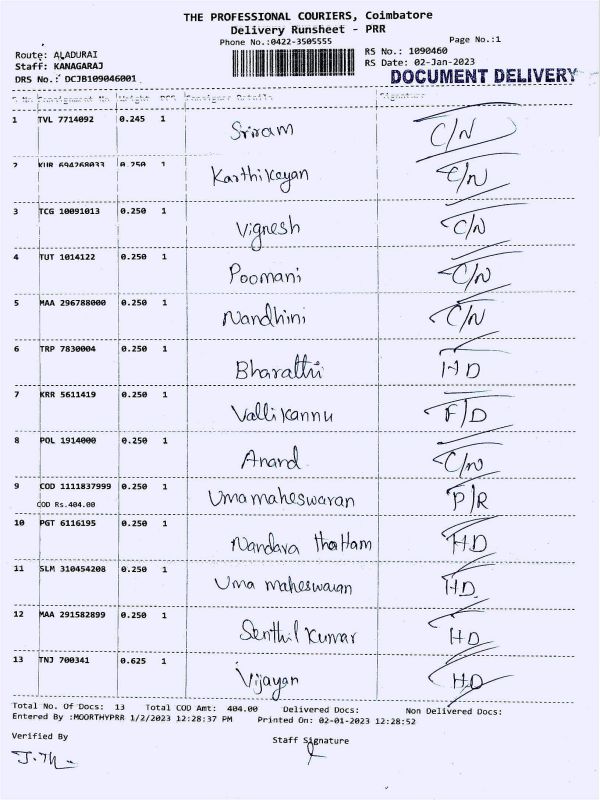 THE PROFESSIONAL COURIERS, Coimbatore
Delivery Runsheet - PRR
Phone No.:0422-3505555 Page No.:1
Route: ALADURAI RS No.: 1090460
Staff: KANAGARAJ RS Date: 02-Jan-2023
DRS No.: DCJB109046001 DOCUMENT DELIVERY
1 TVL 7714092 0.245 1 Sriram C/N
2 KUR 694268033 0.250 1 Karthikeyan C/N
3 TCG 10091013 0.250 1 Vignesh C/N
4 TUT 1014122 0.250 1 Poomani C/N
5 MAA 296788000 0.250 1 Nandhini C/N
6 TRP 7830004 0.250 1 Bharathi HD
7 KRR 5611419 0.250 1 Vallikannu F/D
8 POL 1914000 0.250 1 Anand C/N
9 COD 1111837999 0.250 1 Umamaheswaran P/R
COD Rs.404.00
10 PGT 6116195 0.250 1 Nandava thottam HD
11 SLM 310454208 0.250 1 Uma maheswaran HD
12 MAA 291582899 0.250 1 Senthil Kumar HD
13 TNJ 700341 0.625 1 Vijayan HD
Total No. Of Docs: 13 Total COD Amt: 404.00 Delivered Docs: Non Delivered Docs:
Entered By :MOORTHYPRR 1/2/2023 12:28:37 PM Printed On: 02-01-2023 12:28:52
Verified By Staff Signature